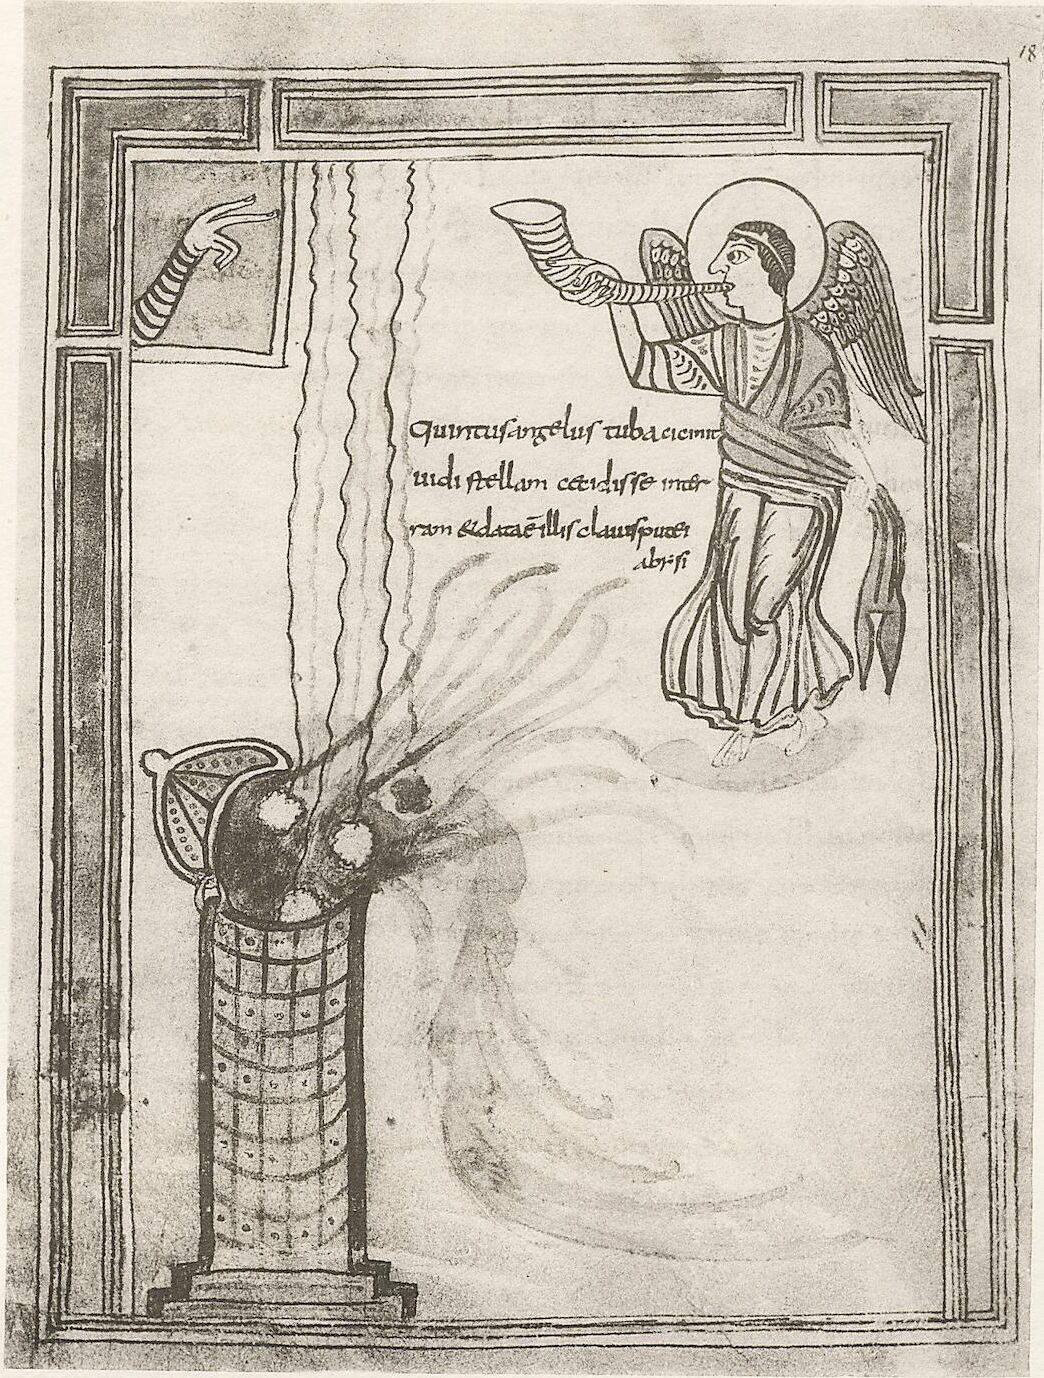 18
quintus angelus tuba cicinit
uidi stellam cecidisse inter
ram & data ē illis clauis putei
abisi